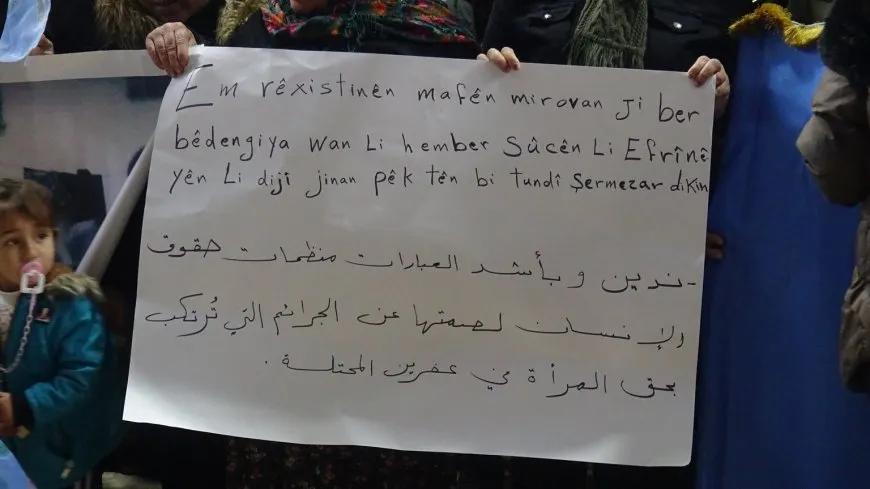 Em rêxistinên mafên mirovan Ji ber
bêdengiya wan Li hember Sûcên Li Efrînê
yên Li dijî jinan pêk tên bi tundî Şermezar dikin
- ندين وبأشد العبارات منظمات حقوق
الإنسان لصمتها عن الجرائم التي تُرتكب
بحق المرأة في عفرين المحتلة .